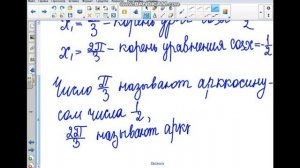 x₁ = π/3 - корень урав- cosx = 1/2
x₁ = 2π/3 - корень уравнения cosx = -1/2
Число π/3 называют арккосину-
сом числа 1/2,
2π/3 называют арк